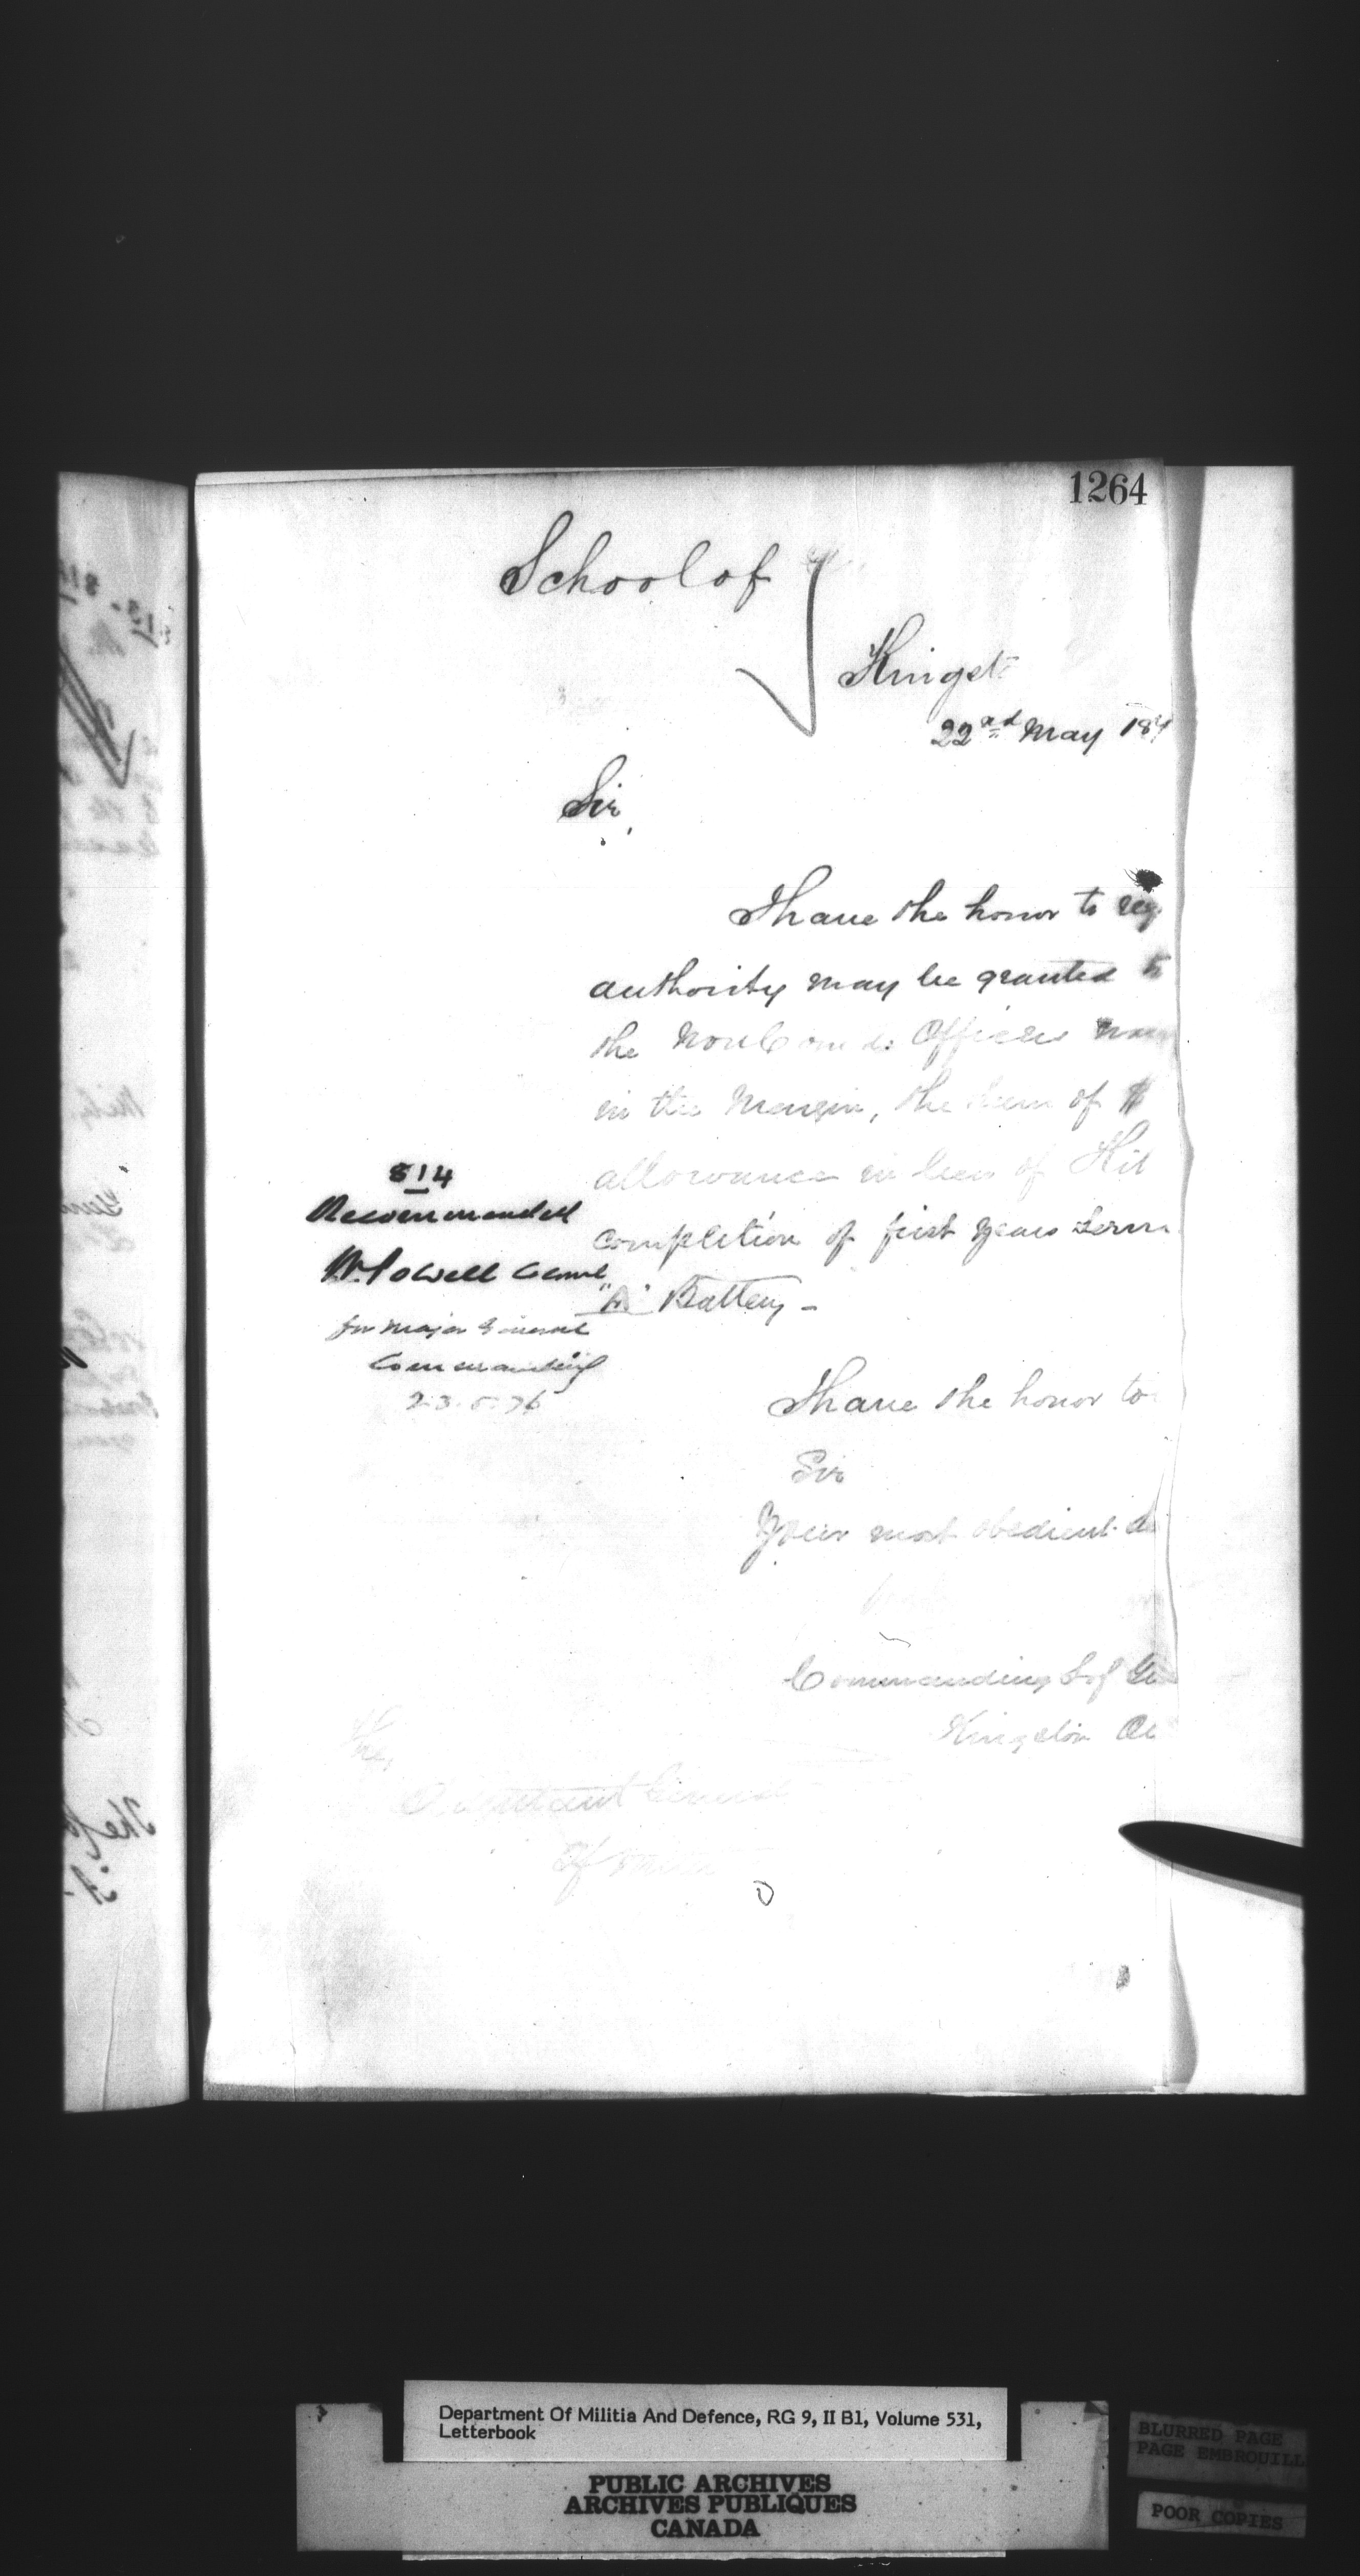 1264
School of
Kingst
22nd May 187
Sir,
I have the honor to req
authority may be granted to
the Non Com d. Officers nam
in the Margin, the sum of $
allowance in lieu of Kit
completion of first years term
"A" Battery -
814
Recommended
W. Powell Colonel
for Major General
Commanding
23.5.76
I have the honor to
Sir
Your most obedient
Commanding S of Gu
Kingston
The
Adjutant General
of
Department Of Militia And Defence, RG 9, II B1, Volume 531,
Letterbook
PUBLIC ARCHIVES
ARCHIVES PUBLIQUES
CANADA
BLURRED PAGE
PAGE EMBROUILL
POOR COPIES